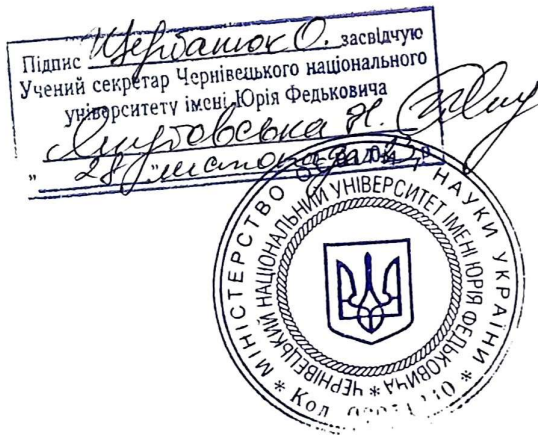 Підпис Щербанюк О. засвідчую
Учений секретар Чернівецького національного
університету імені Юрія Федьковича
Якутовська Н.
" 28 " листопада
МІНІСТЕРСТВО ОСВІТИ І НАУКИ УКРАЇНИ * Код
ЧЕРНІВЕЦЬКИЙ НАЦІОНАЛЬНИЙ УНІВЕРСИТЕТ ІМЕНІ ЮРІЯ ФЕДЬКОВИЧА *